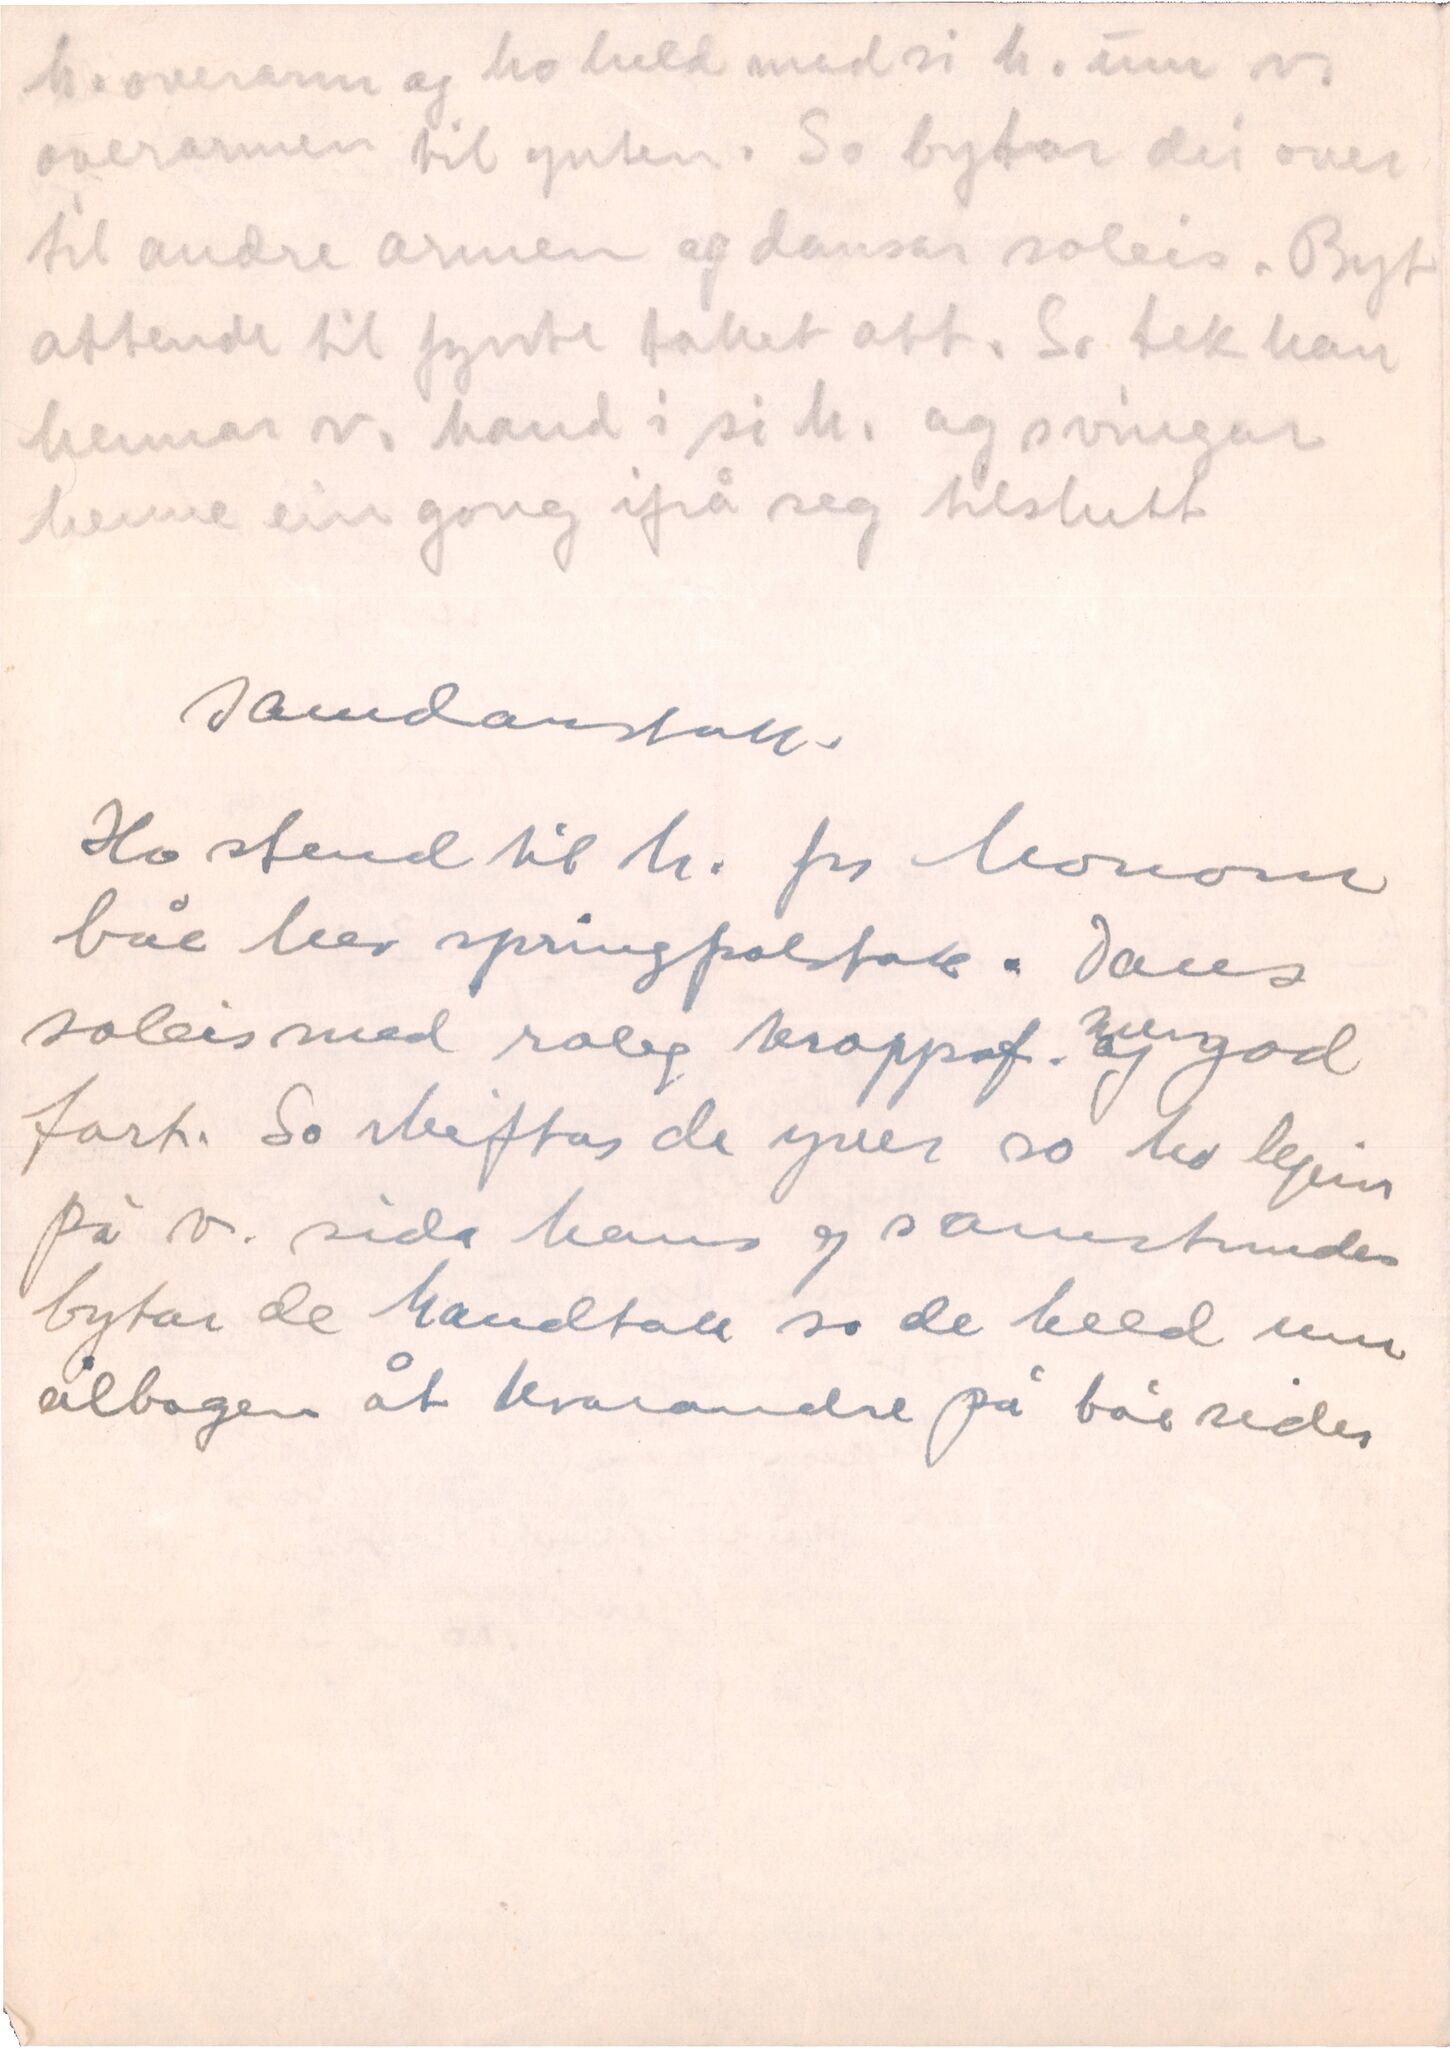 h. overarm og ho held med si h. um v.
overarmen til guten. So bytar dei over
til andre armen og dansar soleis. Byt
attende til fyrste taket att. So tek han
hennar v. hand i si h. og svingar
henne ein gong ifrå seg tilslutt
Samdanstak.
Ho stend til h. for honom
båe hev springpolstak. Dans
soleis med roleg kroppsf. men god
fart. So skiftas de yver so ho kjem
på v. sida hans og samstundes
bytar de handtak so de held um
ålbogen åt kvarandre på båe sider